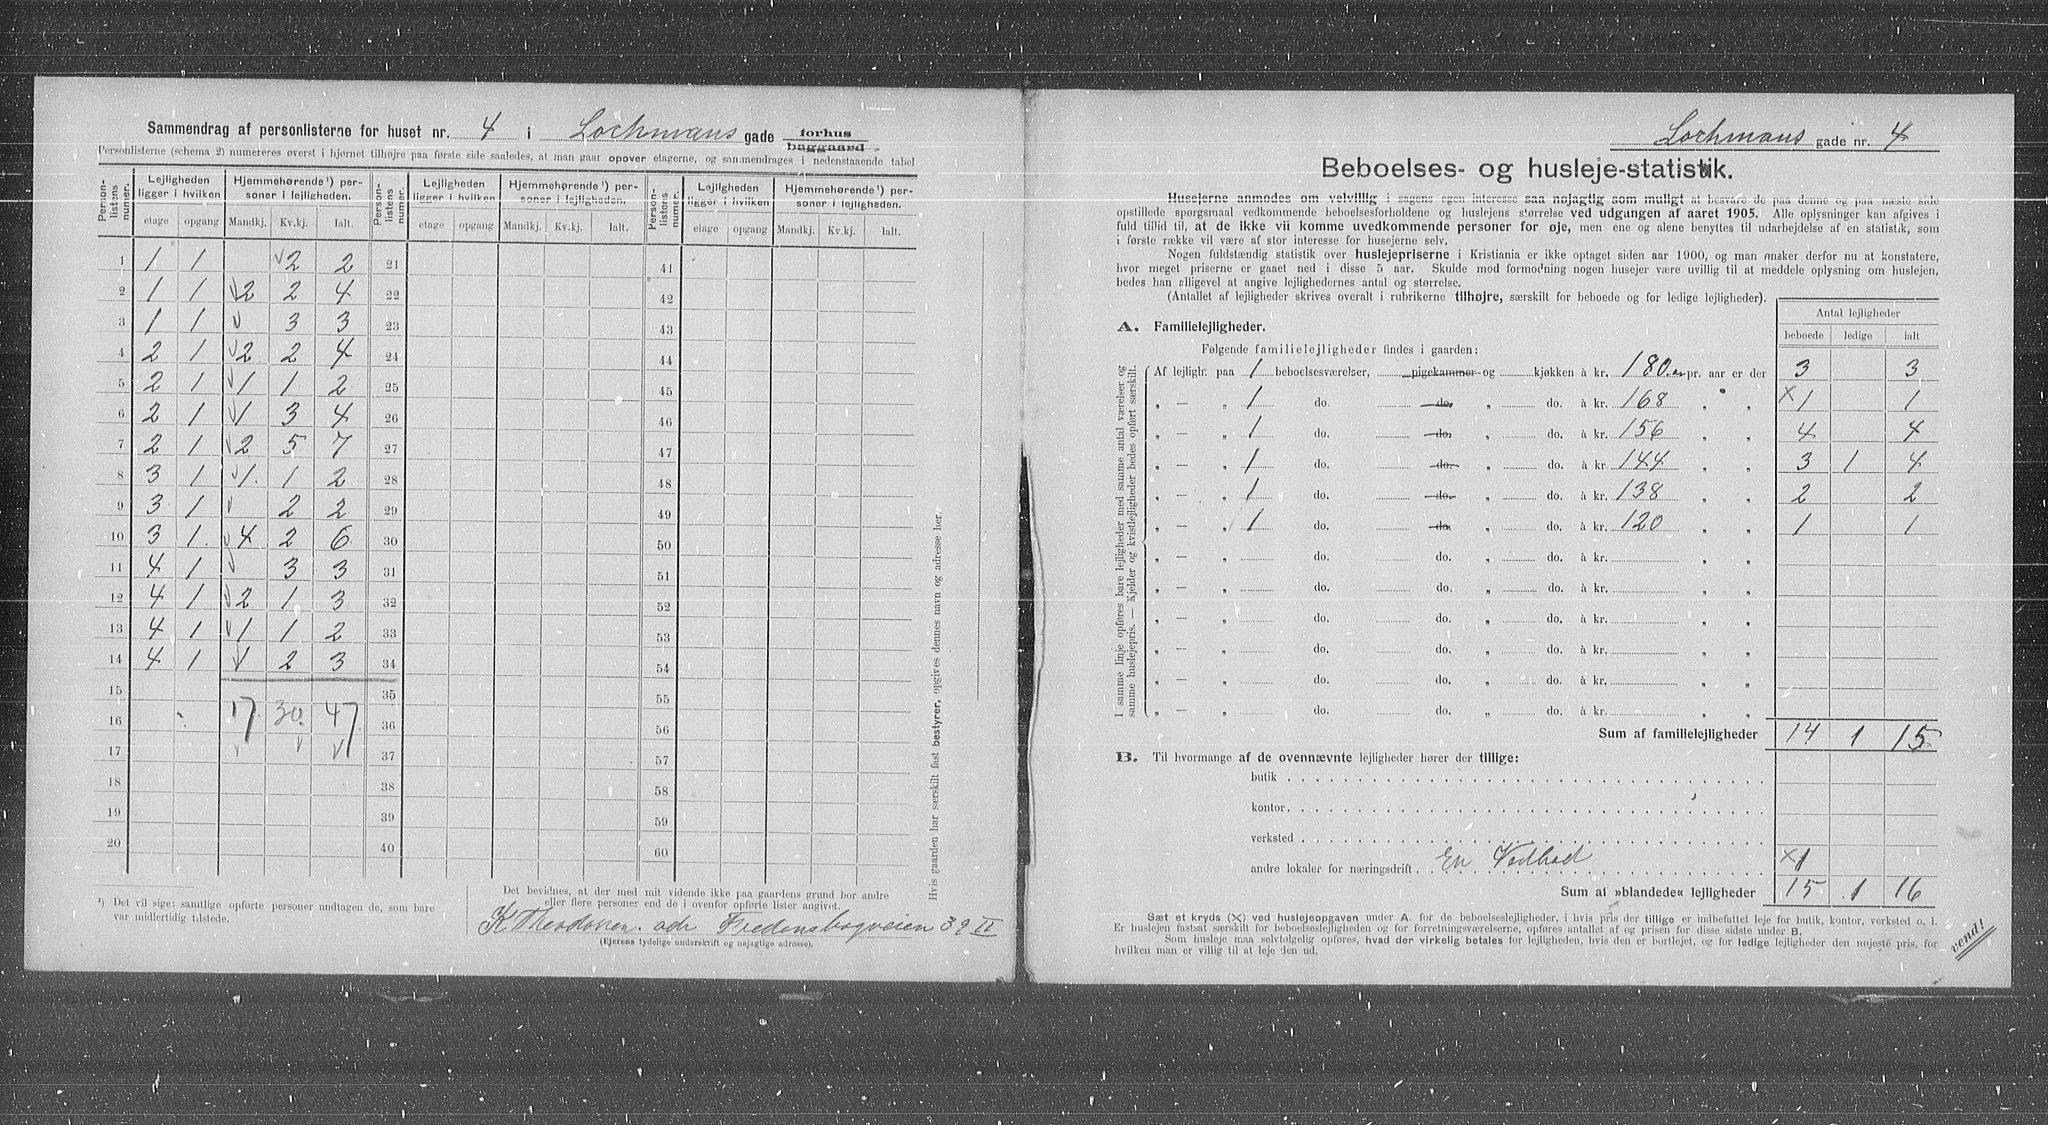 Sammendrag af personlisterne for huset nr. 4 i Lochmans gade forhus baggaard
Personlisterne (schema 2) numereres øverst i hjørnet tilhøjre paa første side saaledes, at man gaar opover etagerne, og sammendrages i nedenstaaende tabel
Personlistens numer. | Lejligheden ligger i hvilken | Hjemmehørende ¹) personer i lejligheden. | Personlistens numer. | Lejligheden ligger i hvilken | Hjemmehørende ¹) personer i lejligheden. | Personlistens numer. | Lejligheden ligger i hvilken | Hjemmehørende ¹) personer i lejligheden.
etage | opgang | Mandkj. | Kv.kj. | Ialt. | etage | opgang | Mandkj. | Kv.kj. | Ialt. | etage | opgang | Mandkj. | Kv.kj. | Ialt.
1 1 1 2 2 21 41
2 1 1 2 2 4 22 42
3 1 1 3 3 23 43
4 2 1 2 2 4 24 44
5 2 1 1 1 2 25 45
6 2 1 1 3 4 26 46
7 2 1 2 5 7 27 47
8 3 1 1 1 2 28 48
9 3 1 2 2 29 49
10 3 1 4 2 6 30 50
11 4 1 3 3 31 51
12 4 1 2 1 3 32 52
13 4 1 1 1 2 33 53
14 4 1 1 2 3 34 54
15 35 55
16 17 30 47 36 56
17 37 57
18 38 58
19 39 59
20 40 60
¹) Det vil sige: samtlige opførte personer undtagen de, som bare
var midlertidig tilstede.
Det bevidnes, at der med mit vidende ikke paa gaardens grund bor andre
eller flere personer end de i ovenfor opførte lister angivet.
K Theodorsen. adr Fredensborgveien 39 II
(Ejerens tydelige underskrift og nøjagtige adresse).
Hvis gaarden har særskilt fast bestyrer, opgives dennes navn og adresse her.
Lochmans gade nr. 4
Beboelses- og husleje-statistik.
Husejerne anmodes om velvillig i sagens egen interesse saa nøjagtig som muligt at besvare de paa denne og paa næste side
opstillede spørgsmaal vedkommende beboelsesforholdene og huslejens størrelse ved udgangen af aaret 1905. Alle oplysninger kan afgives i
fuld tillid til, at de ikke vil komme uvedkommende personer for øje, men ene og alene benyttes til udarbejdelse af en statistik, som
i første række vil være af stor interesse for husejerne selv.
Nogen fuldstændig statistik over huslejepriserne i Kristiania er ikke optaget siden aar 1900, og man ønsker derfor nu at konstatere,
hvor meget priserne er gaaet ned i disse 5 aar. Skulde mod formodning nogen husejer være uvillig til at meddele oplysning om huslejen,
bedes han alligevel at angive lejlighedernes antal og størrelse.
(Antallet af lejligheder skrives overalt i rubrikerne tilhøjre, særskilt for beboede og for ledige lejligheder).
Antal lejligheder
beboede | ledige | ialt
A. Familielejligheder.
Følgende familielejligheder findes i gaarden:
I samme linje opføres bare lejligheder med samme antal værelser og
samme huslejepris. — Kjelder og kvistlejligheder bedes opført særskilt.
Af lejligh. paa 1 beboelsesværelser, pigekammer og kjøkken à kr. 180 pr. aar er der 3 3
„ — „ 1 do. do. „ do. à kr. 168 „ „ ×1 1
„ — „ 1 do. do. „ do. à kr. 156 „ „ 4 4
„ — „ 1 do. do. „ do. à kr. 144 „ „ 3 1 4
„ — „ 1 do. do. „ do. à kr. 138 „ „ 2 2
„ — „ 1 do. do. „ do. à kr. 120 „ „ 1 1
„ — „ do. do. „ do. à kr. „ „
„ — „ do. do. „ do. à kr. „ „
„ — „ do. do. „ do. à kr. „ „
„ — „ do. do. „ do. à kr. „ „
„ — „ do. do. „ do. à kr. „ „
„ — „ do. do. „ do. à kr. „ „
Sum af familielejligheder 14 1 15
B. Til hvormange af de ovennævnte lejligheder hører der tillige:
butik
kontor
verksted
andre lokaler for næringsdrift. En Vedbod ×1
Sum af »blandede« lejligheder 15 1 16
Sæt et kryds (×) ved huslejeopgaven under A. for de beboelseslejligheder, i hvis pris der tillige er indbefattet leje for butik, kontor, verksted o. l.
Er huslejen fastsat særskilt for beboelseslejligheden og for forretningsværelserne, opføres antallet af og prisen for disse sidste under B.
Som husleje maa selvfølgelig opføres, hvad der virkelig betales for lejligheden, hvis den er bortlejet, og for ledige lejligheder den nøjeste pris, for
hvilken man er villig til at leje den ud.
vend!